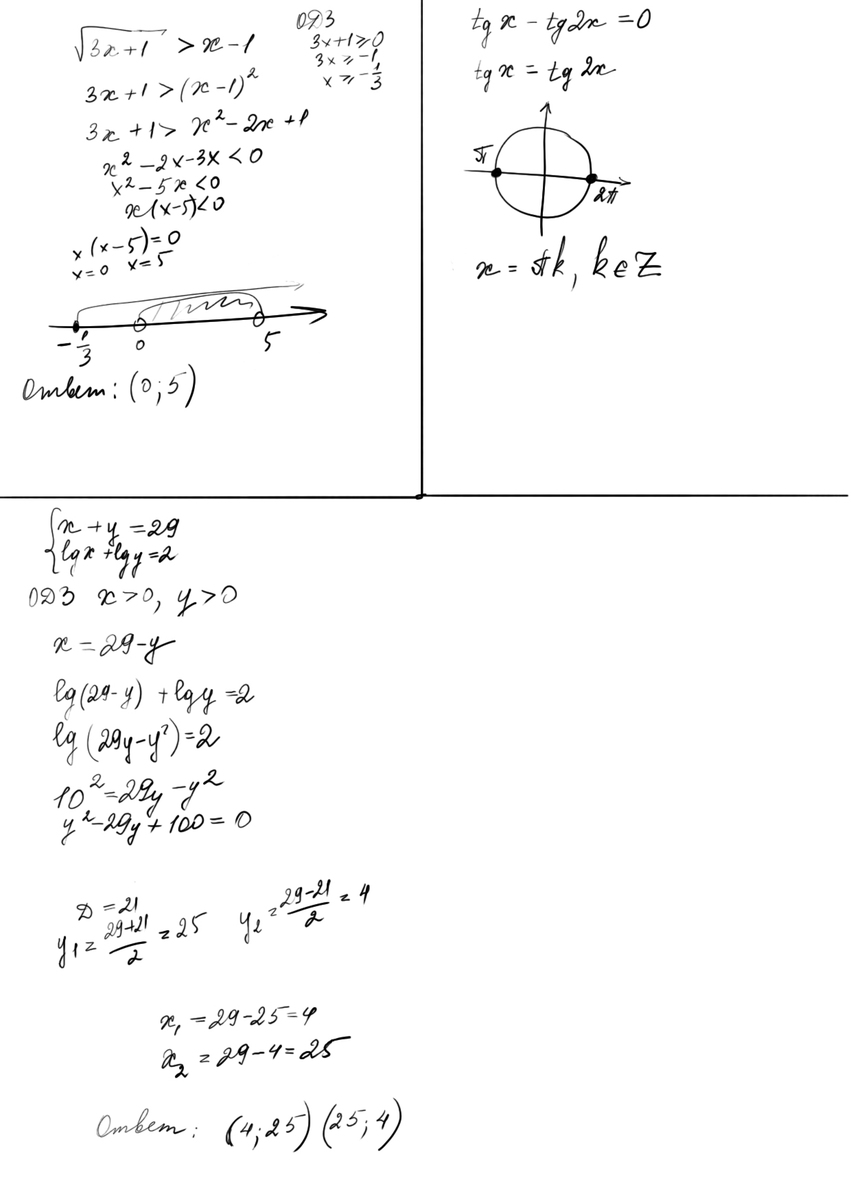 √3x+1 > x-1
ОДЗ
3x+1≥0
3x≥-1
x≥-1/3
3x+1>(x-1)²
3x+1> x²-2x+1
x²-2x-3x<0
x²-5x<0
x(x-5)<0
x(x-5)=0
x=0 x=5
-1/3 0 5
Ответ: (0;5)
tg x - tg 2x =0
tg x = tg 2x
π 2π
x = πk, k∈Z
{x+y=29
lgx+lgy=2
ОДЗ x>0, y>0
x=29-y
lg(29-y)+lgy=2
lg(29y-y²)=2
10²=29y-y²
y²-29y+100=0
D=21
y₁=(29+21)/2=25 y₂=(29-21)/2=4
x₁=29-25=4
x₂=29-4=25
Ответ: (4;25) (25;4)